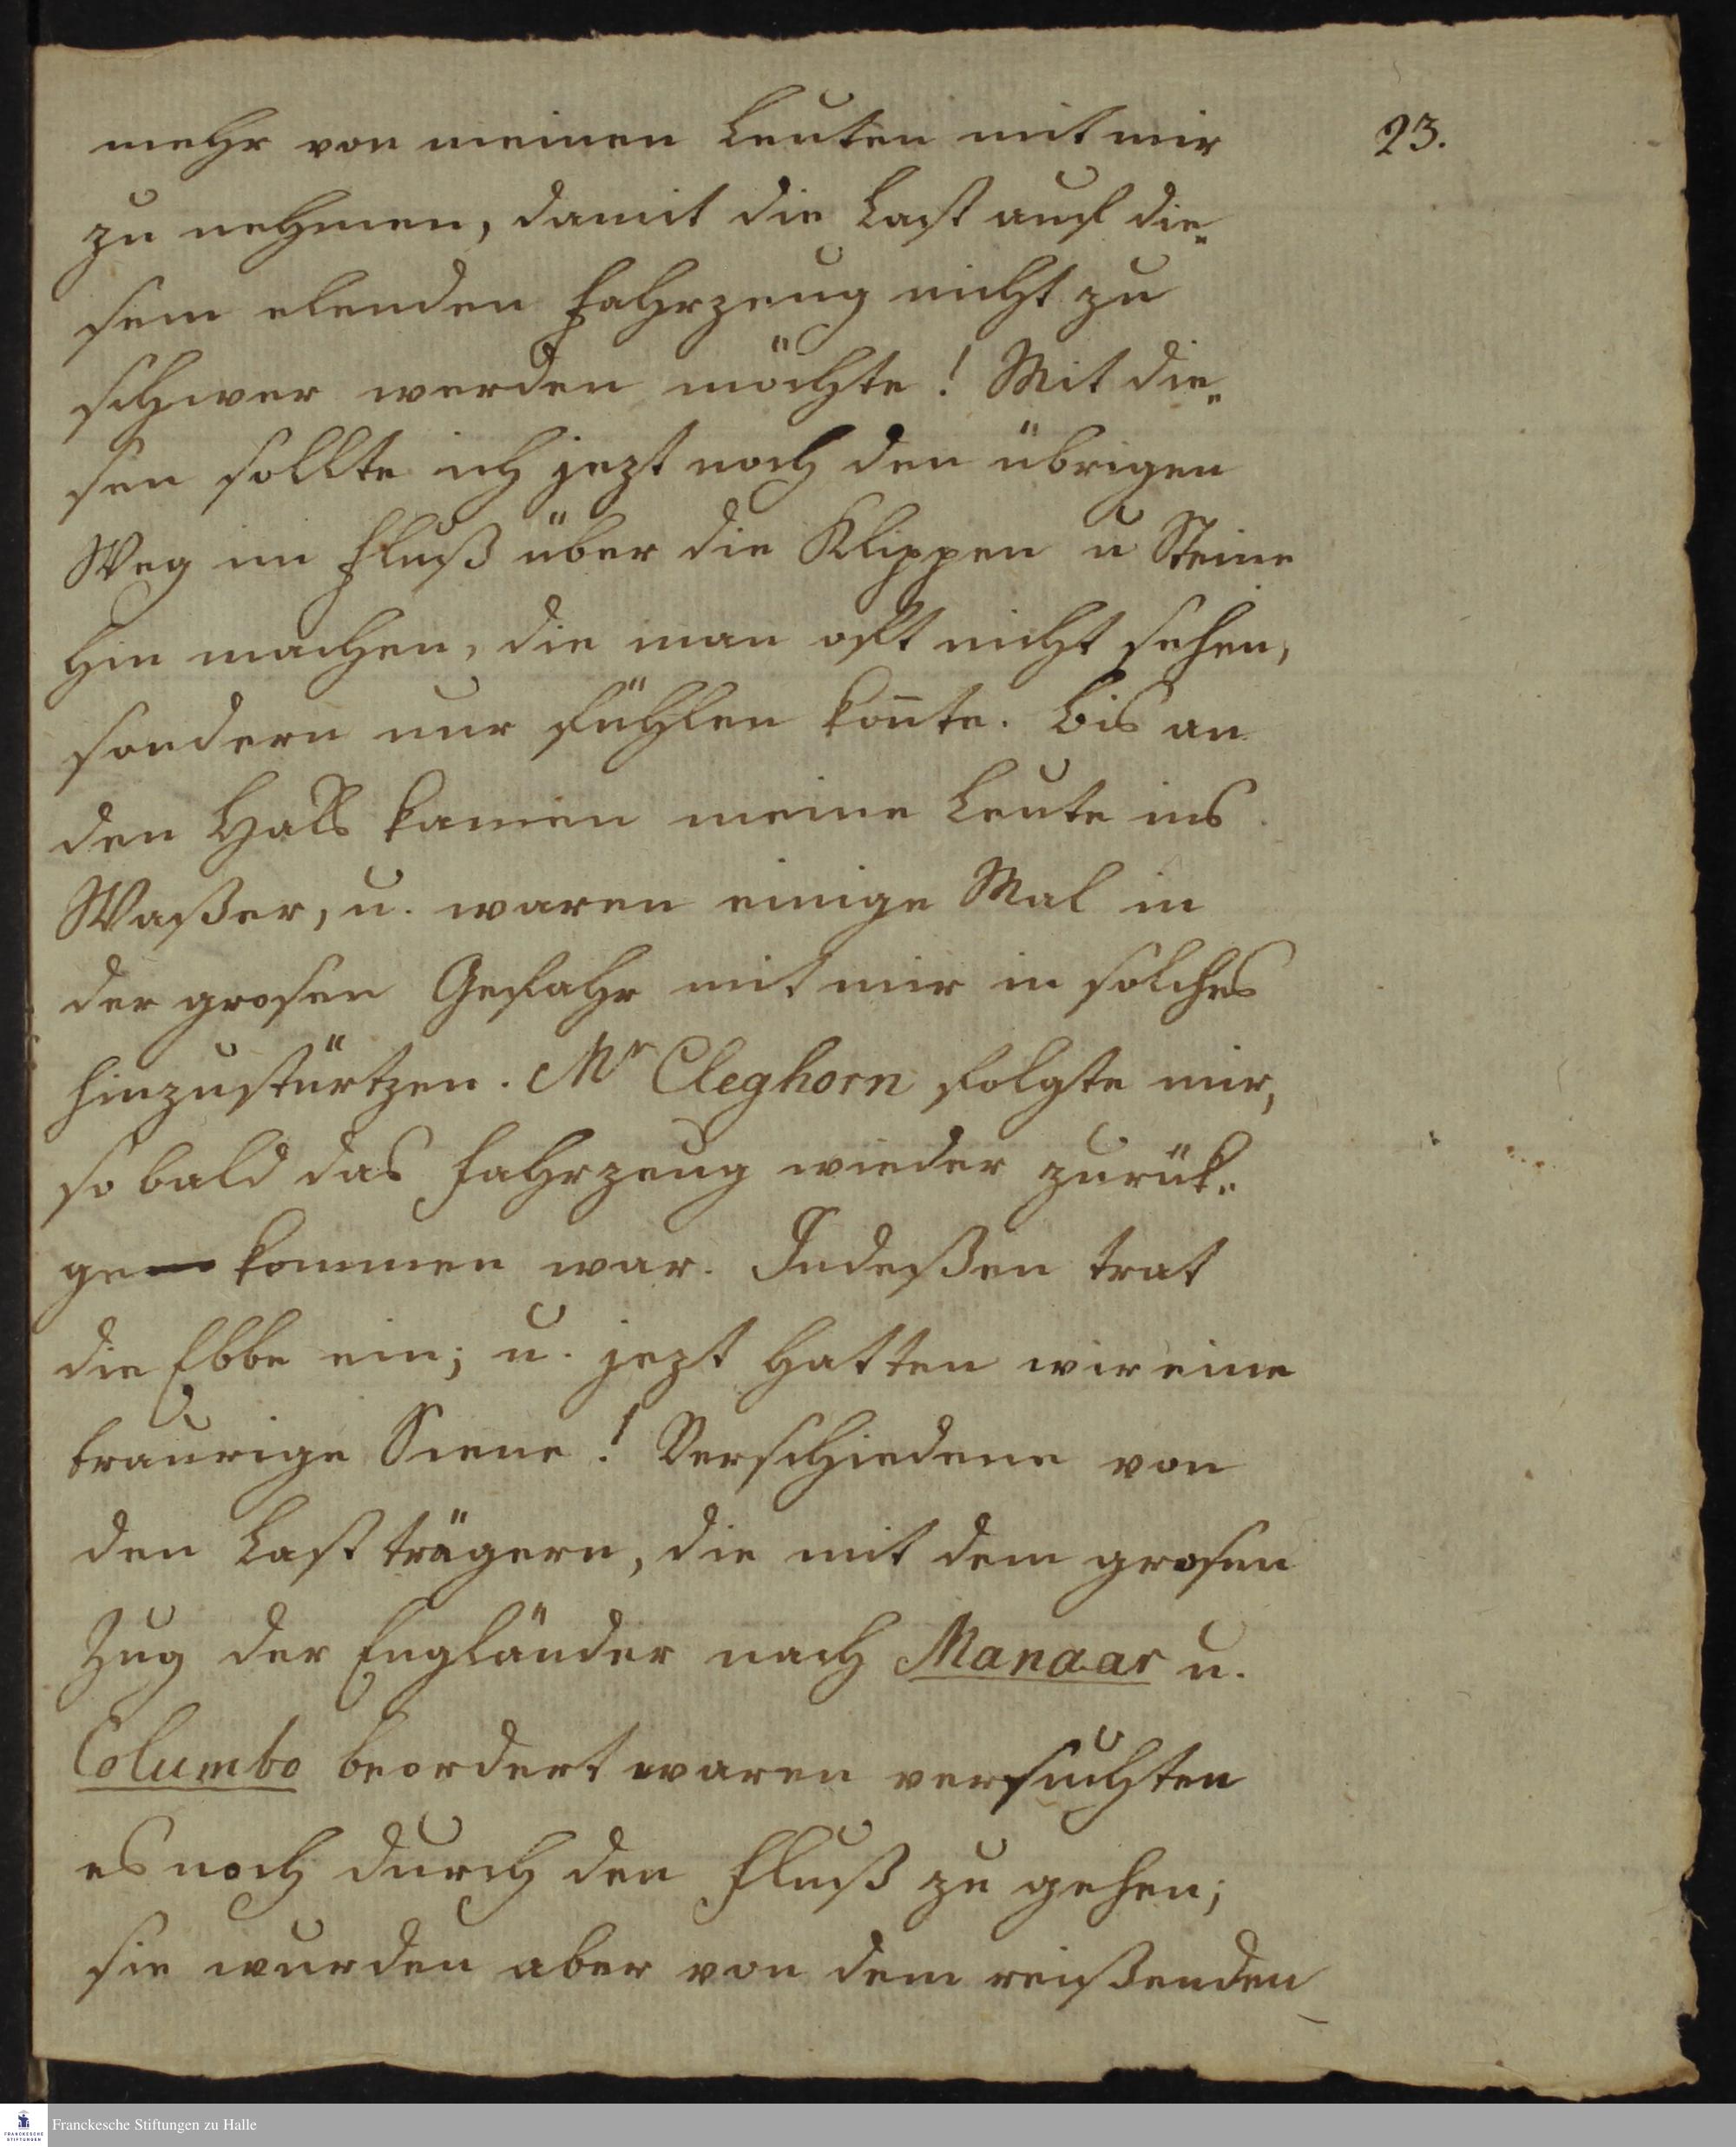 mehr von meinen Leuten mit mir
23.
zu nehmen, damit die Last auf die„
sem elenden Fahrzeug nicht zu
schwer werden möchte! Mit die„
sen sollte ich jezt noch den übrigen
Weg im Fluß über die Klippen u Steine
hin machen, die man oft nicht sehen,
sondern nur fühlen kon̄te. Bis an
den Hals kamen meine Leute ins
Waßer, u. waren einige Mal in
der grosen Gefahr mit mir in solches
hinzustürtzen. Mr Cleghorn folgte mir,
so bald das Fahrzeug wieder zurük„
ge kommen war. Indeßen trat
die Ebbe ein; u. jezt hatten wir eine
traurige Scene! Verschiedene von
den Lastträgern, die mit dem grosen
Zug der Engländer nach Manaar u.
Columbo beordert waren versuchten
es noch durch den Fluß zu gehen;
sie wurden aber von dem reißenden
Franckesche Stiftungen zu Halle
FRANCKESCHE
STIFTUNGEN